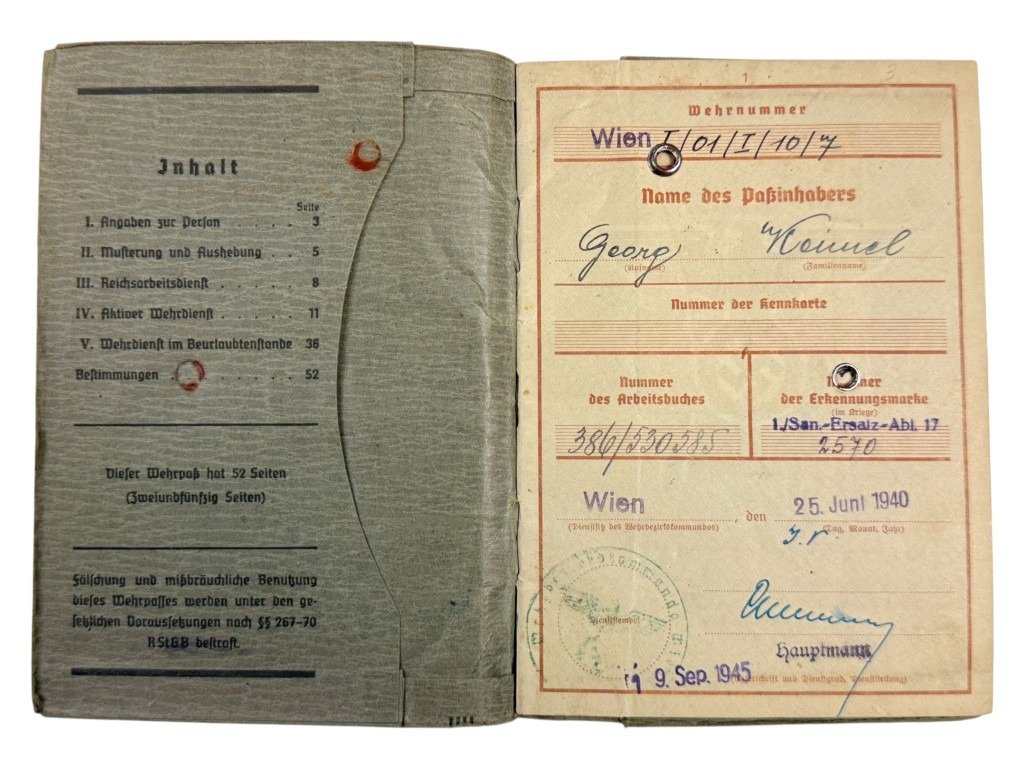 Inhalt
Seite
I. Angaben zur Person . . . . 3
II. Musterung und Aushebung . . 5
III. Reichsarbeitsdienst . . . . . 8
IV. Aktiver Wehrdienst . . . . . 11
V. Wehrdienst im Beurlaubtenstande 36
Bestimmungen . . . . . . . 52
Dieser Wehrpaß hat 52 Seiten
(Zweiundfünfzig Seiten)
Fälschung und mißbräuchliche Benutzung
dieses Wehrpasses werden unter den ge-
setzlichen Voraussetzungen nach §§ 267-70
RStGB bestraft.
1
Wehrnummer
Wien I/01/I/10/7
Name des Paßinhabers
Georg
(Rufname) (Familienname)
Nummer der Kennkarte
Nummer
des Arbeitsbuches
386/530585
Nummer
der Erkennungsmarke
(im Kriege)
1./San.-Ersatz-Abt. 17
2570
Wien, den 25. Juni 1940
(Dienstsitz des Wehrbezirkskommandos) (Tag, Monat, Jahr)
Dienststempel
Hauptmann
9. Sep. 1945
(Unterschrift und Dienstgrad, Dienststellung)